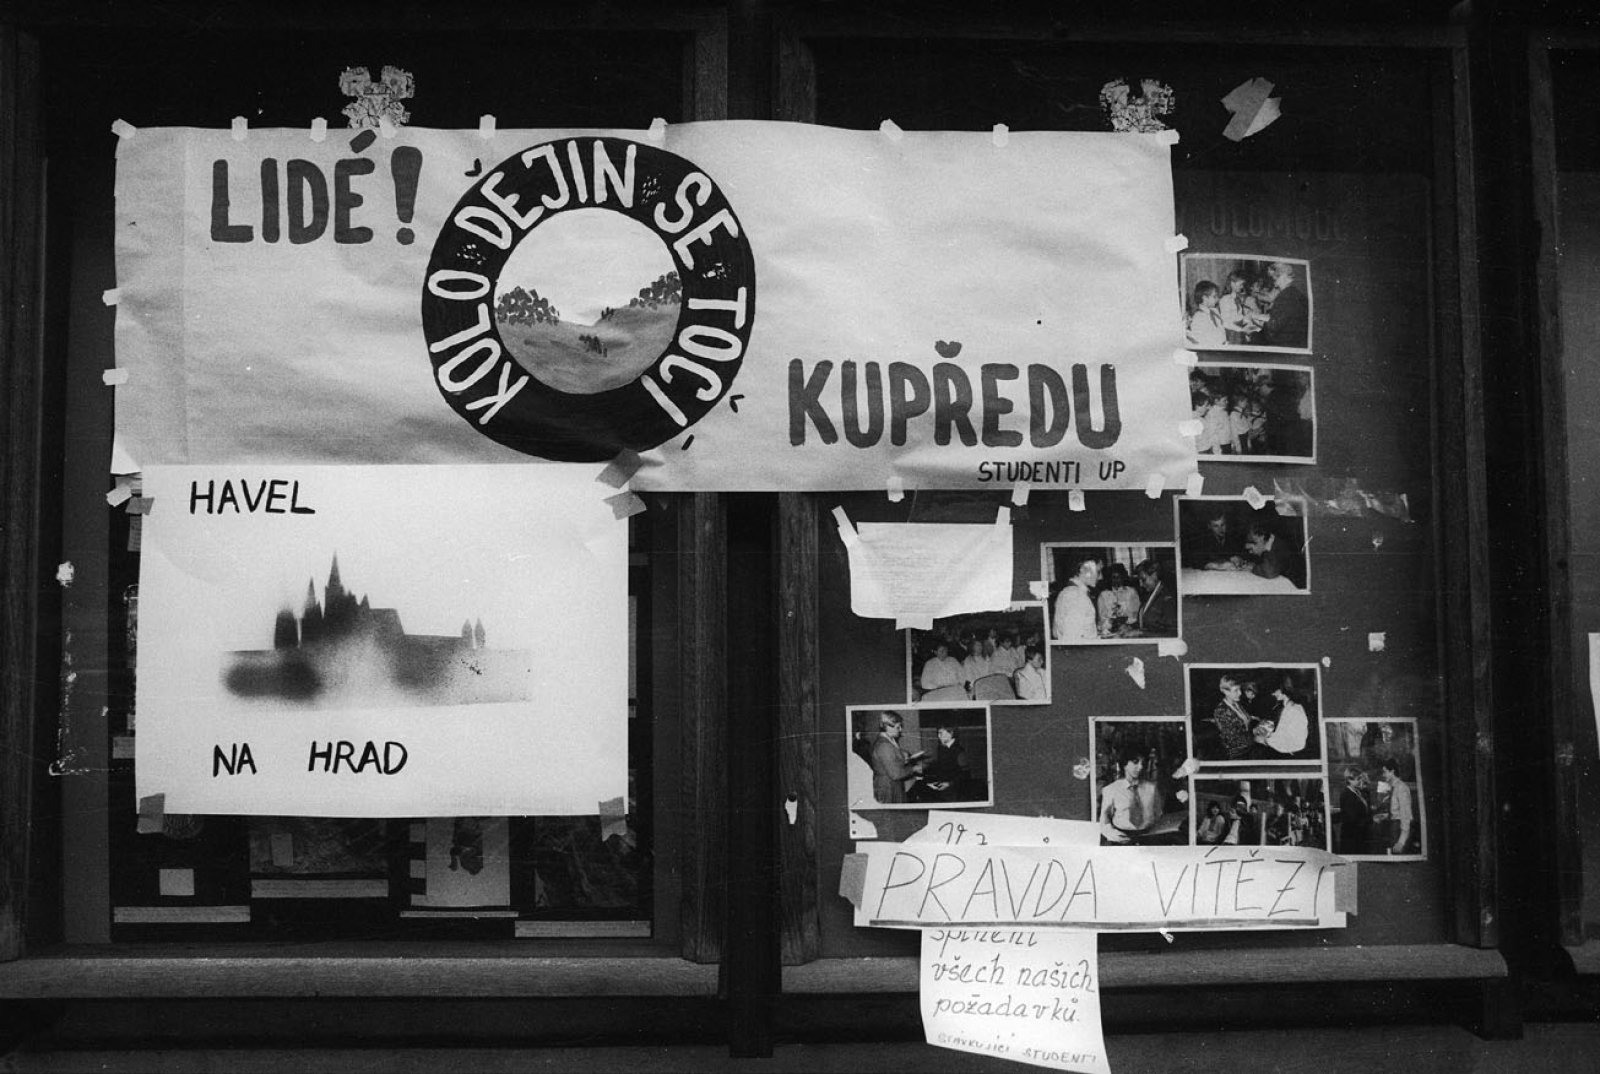 LIDÉ!
KOLO DĚJIN SE TOČÍ
KUPŘEDU
STUDENTI UP
OLOMOUC
HAVEL
NA HRAD
PRAVDA VÍTĚZÍ
splnění
všech našich
požadavků.
STÁVKUJÍCÍ STUDENTI